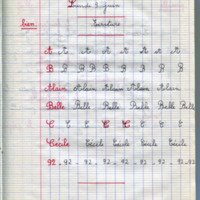 bien Écriture
A A A A A A A
B B B B B B B B
Alain Alain Alain Alain Alain
Belle Belle Belle Belle Belle
C C C C C C C
Cécile Cécile Cécile Cécile Cécile
92 - 92 - 92 - 92 - 92 - 92 - 92 - 92